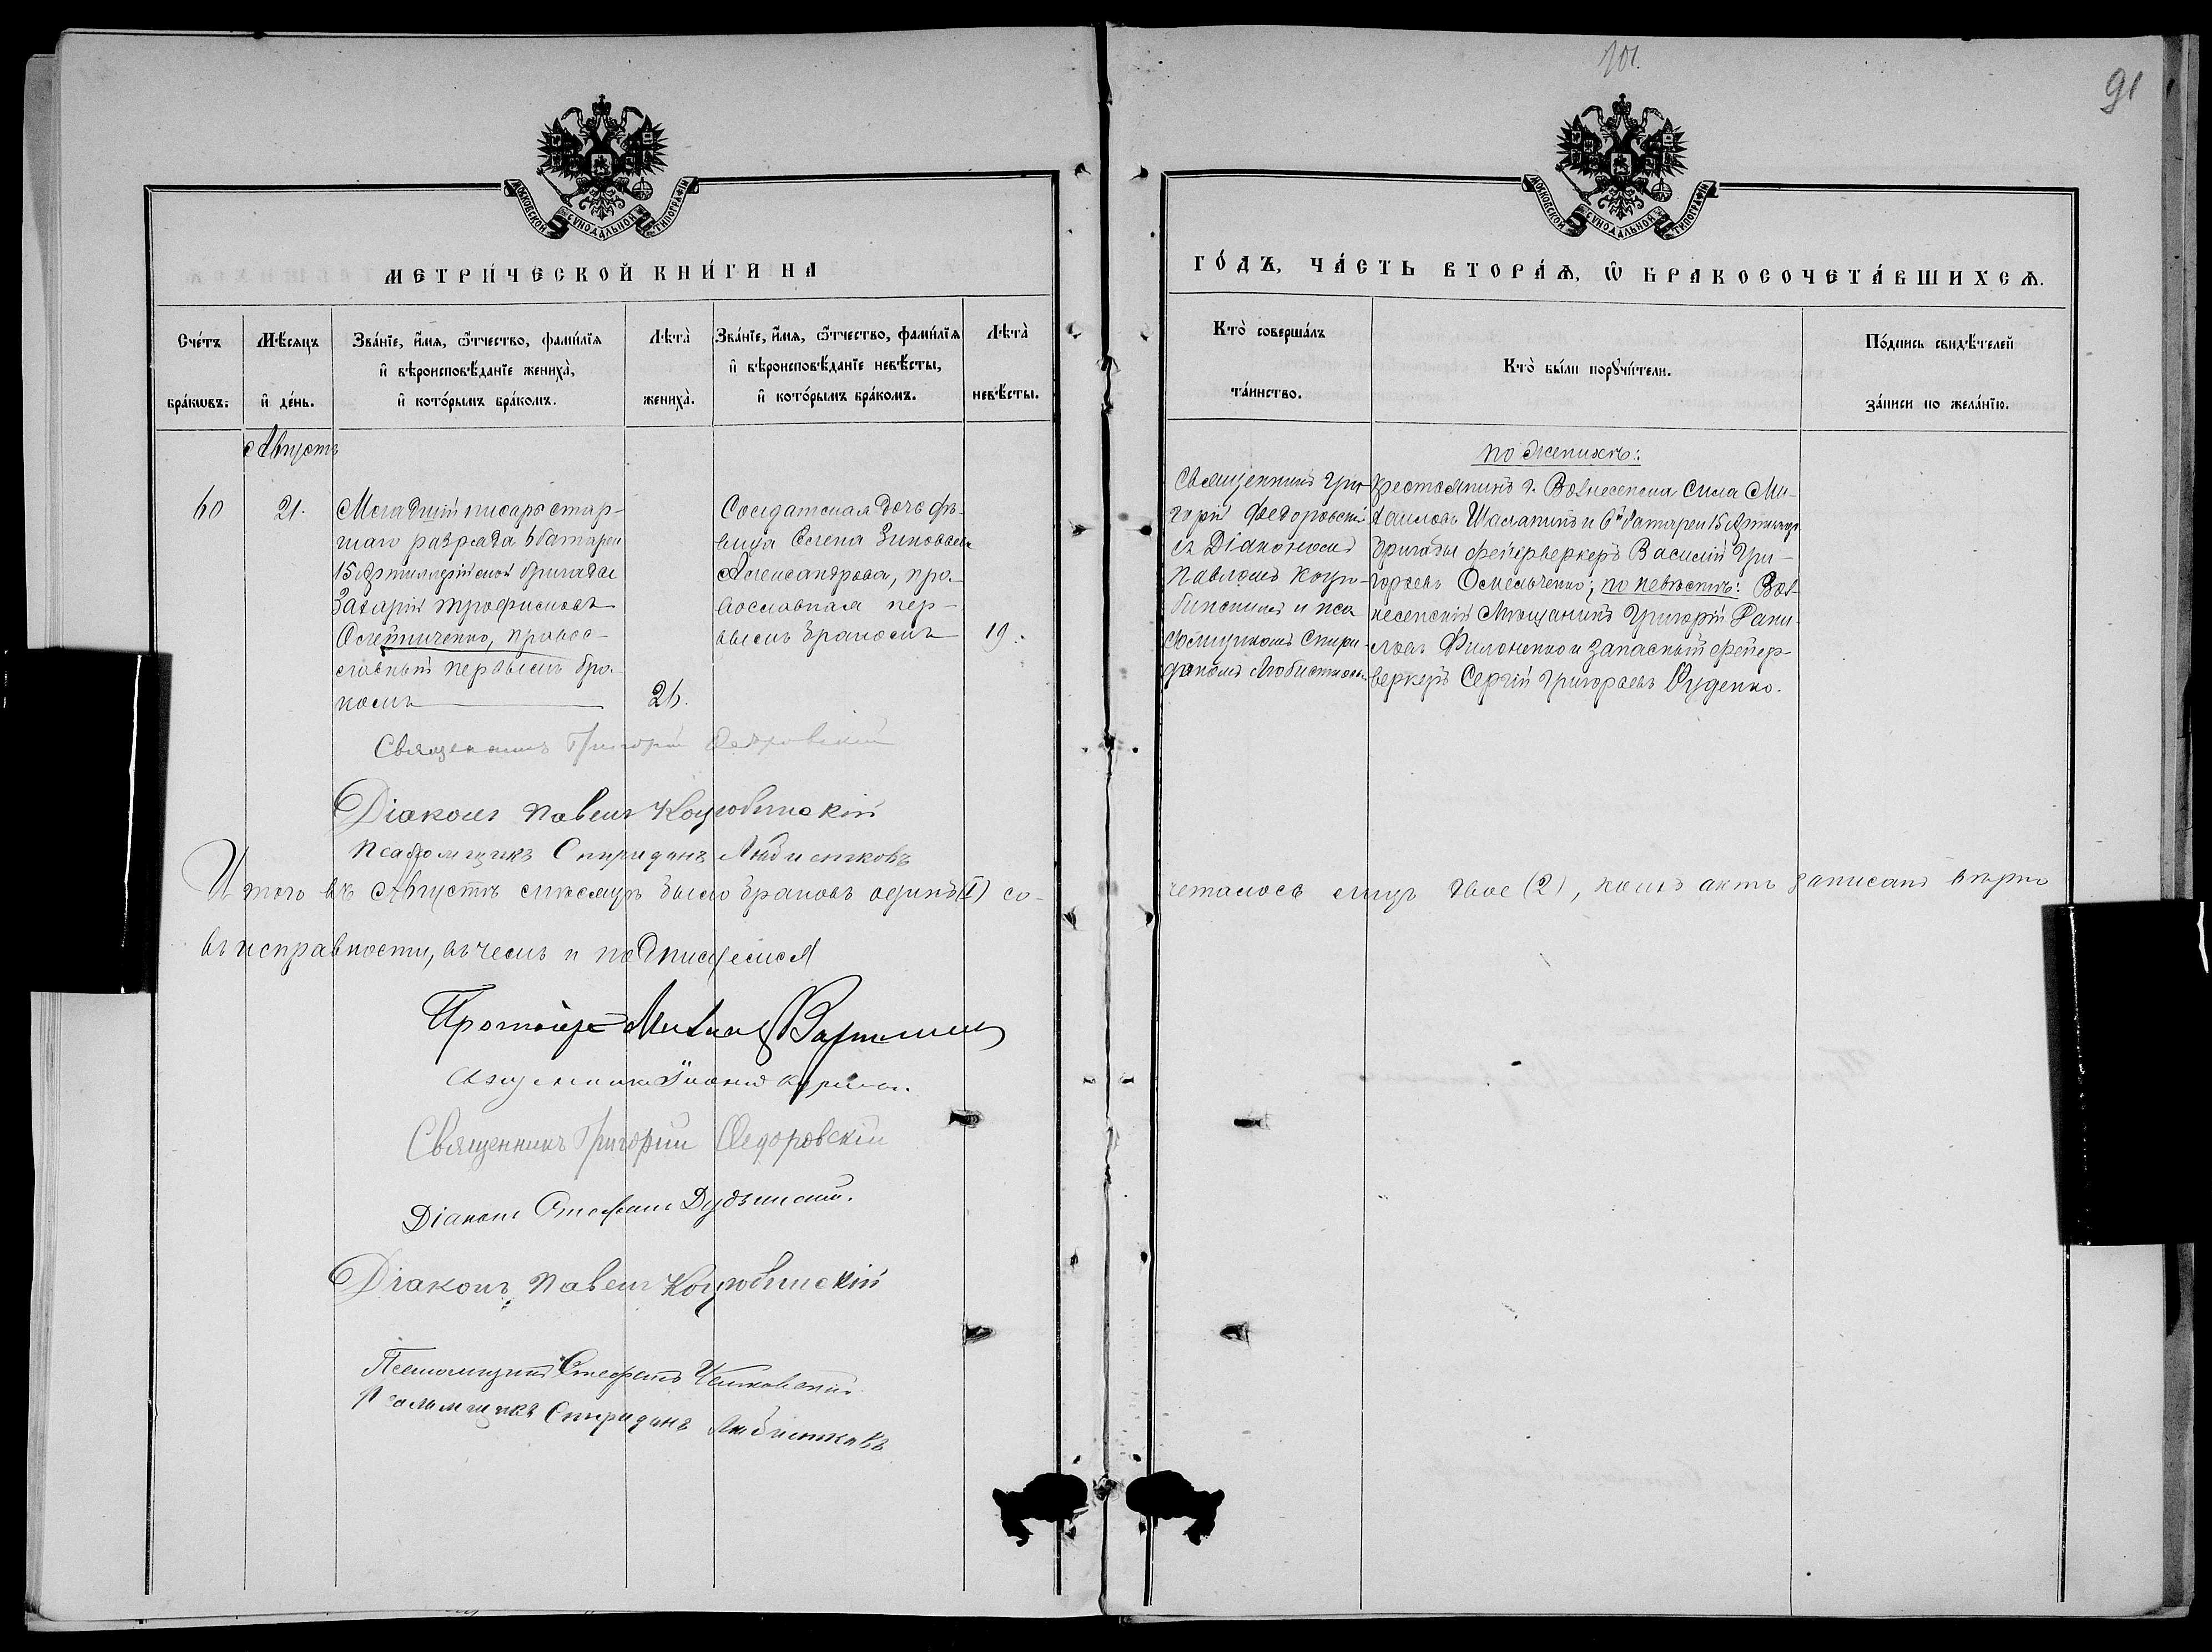 101.
91
МОСКОВСКОЙ СУНОДАЛЬНОЙ ТИПОГРАФІИ
МОСКОВСКОЙ СУНОДАЛЬНОЙ ТИПОГРАФІИ
МЕТРИ́ЧЕСКОЙ КНИ́ГИ НА
ГО́ДЪ, ЧА́СТЬ ВТОРА́Ѧ, Ѿ БРАКОСОЧЕТА́ВШИХСѦ.
Сче́тъ бра́кѡвъ.
Мѣ́сяцъ и҆ де́нь.
Зва́нїе, и҆́мя, ѻ҆́тчество, фами́лїя
и҆ вѣроисповѣ́данїе жениха̀,
и҆ кото́рымъ бра́комъ.
Лѣта̀ жениха̀.
Зва́нїе, и҆́мя, ѻ҆́тчество, фами́лїя
и҆ вѣроисповѣ́данїе невѣ́сты,
и҆ кото́рымъ бра́комъ.
Лѣта̀ невѣ́сты.
Кто̀ соверша́лъ та́инство.
Кто̀ бы́ли порꙋчи́тели.
По́дпись свидѣ́телей
за́писи по жела́нїю.
Августъ
60
21.
Младшій писарь стар-
шаго разряда 6 батареи
15 Артиллерійской бригады
Захарій Трофимовъ
православ-
славный первымъ бра-
комъ
26.
Солдатская дочь дѣ-
вица Елена Зиновьева
Александрова, пра-
вославная пер-
вымъ бракомъ
19.
Священникъ Гри-
горій Федоровскій
съ Діакономъ
Павломъ Коцю-
бинскимъ и пса-
ломщикомъ Спири-
дономъ Любистковъ
по женихѣ:
крестьянинъ г. Вознесенска Сила Ми-
хаиловъ и 6й батареи 15 Артиллер.
бригады фейерверкеръ Василій Гри-
горьевъ Омельченко; по невѣстѣ: Воз-
несенскій мѣщанинъ Григорій Дани-
ловъ Филоненко и запасный фейер-
веркеръ Сергій Григорьевъ Руденко.
Священникъ Григорій Федоровскій
Діаконъ Павелъ Коцюбинскій
Псаломщикъ Спиридонъ Любистковъ
Итого въ Августѣ мѣсяцѣ было браковъ одинъ (1) со-
четалось лицъ двое (2), коихъ актъ записанъ вѣрно
въ исправности, въ чемъ и подписуемся
Протоіерей Михаилъ
Священникъ Іоаннъ
Священникъ Григорій Федоровскій
Діаконъ Стефанъ
Діаконъ Павелъ Коцюбинскій
Псаломщикъ Стефанъ
Псаломщикъ Спиридонъ Любистковъ